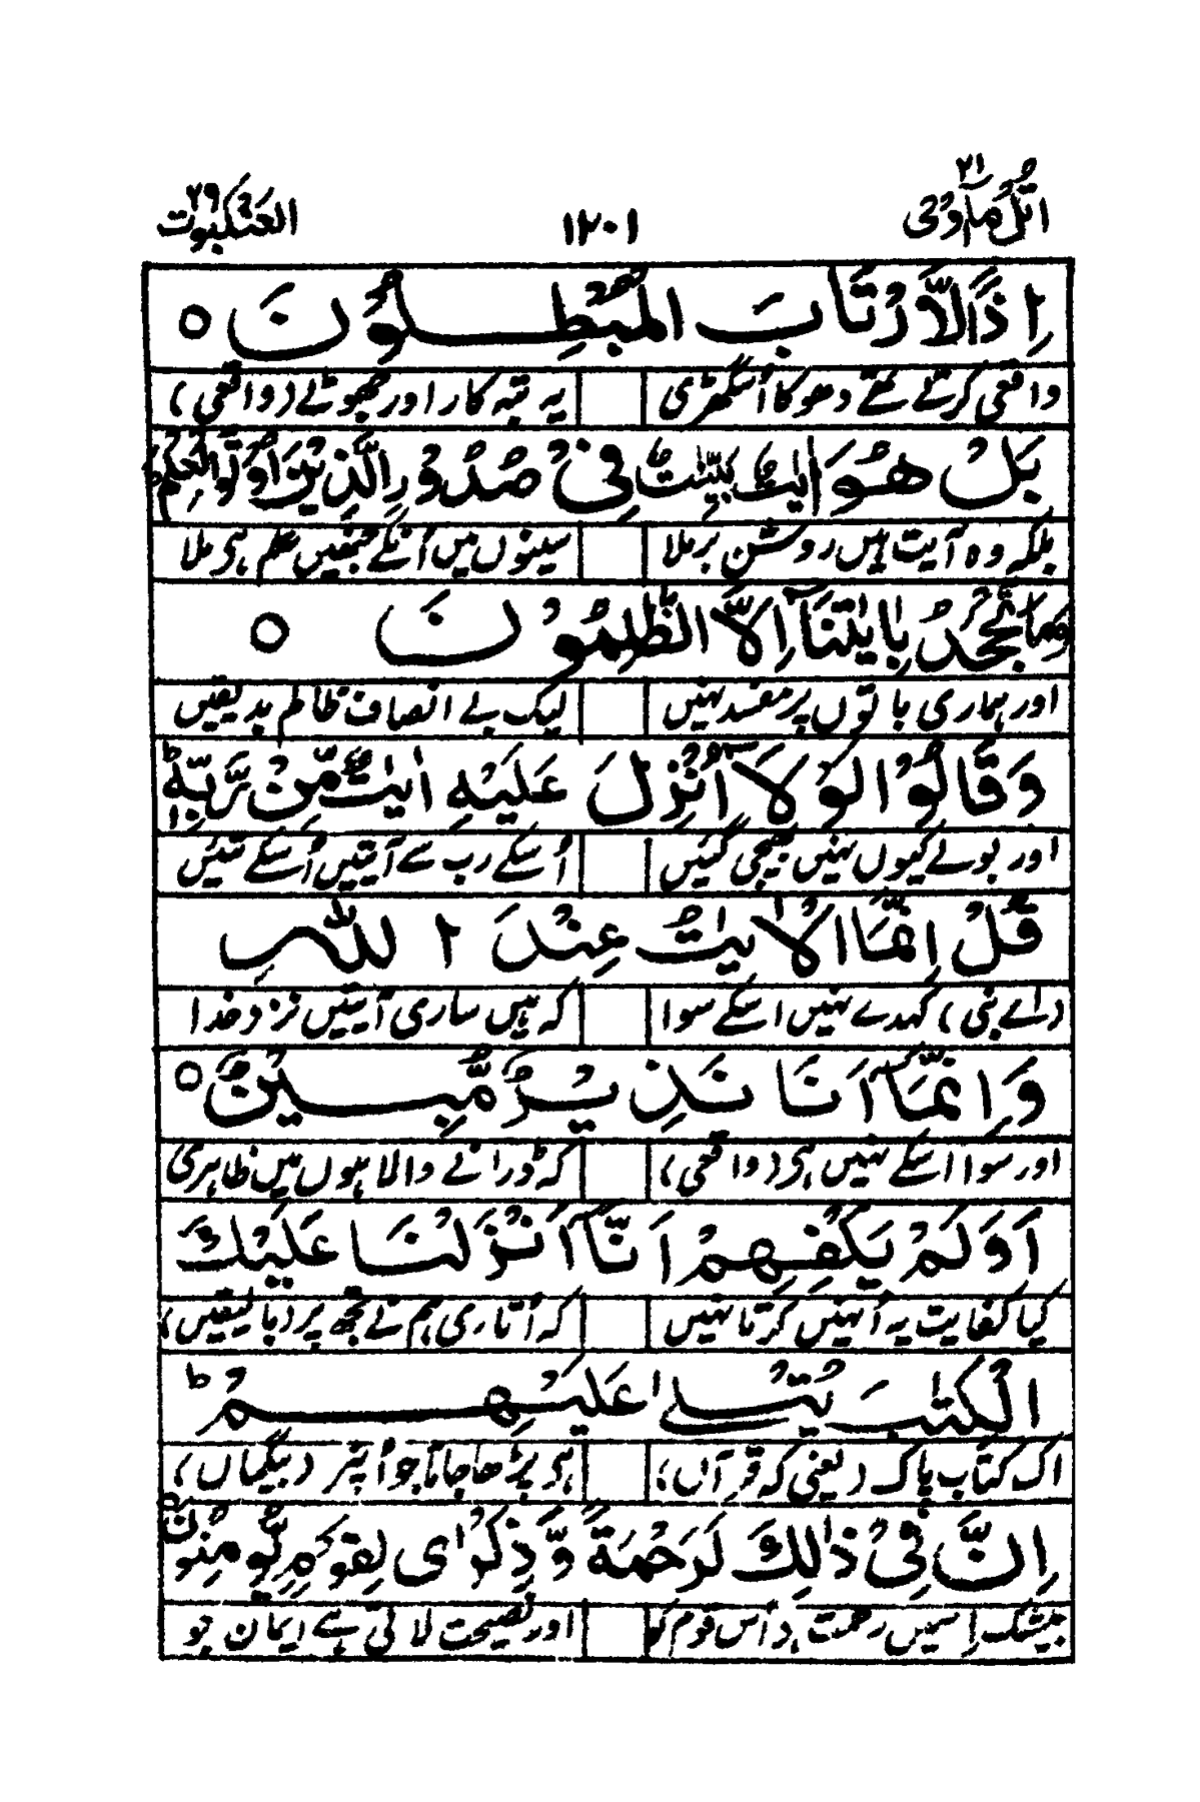 اتل مآ اوحی ۲۱ ۱۲۰۱ العنکبوت ۲۹
اِذًا لَّارْتَابَ الْمُبْطِلُوْنَ ○
واقعی کرتے تھے دھوکا اُسگھڑی یہ تبہ کار اور جھوٹے (واقعی)
بَلْ هُوَ اٰيٰتٌۢ بَيِّنٰتٌ فِيْ صُدُوْرِ الَّذِيْنَ اُوْتُوا الْعِلْمَ ؕ
بلکہ وہ آیت ہیں روشن برملا سینوں میں اُنکے جنھیں علم ہی ملا
وَمَا يَجْحَدُ بِاٰيٰتِنَآ اِلَّا الظّٰلِمُوْنَ ○
اور ہماری باتوں پر مفسد نہیں لیک بے انصاف ظالم بد یقیں
وَقَالُوْا لَوْلَآ اُنْزِلَ عَلَيْهِ اٰيٰتٌ مِّنْ رَّبِّهٖ ؕ
اور بولے کیوں نہیں بھیجی گئیں اُسکے رب سے آیتیں اُسکے تئیں
قُلْ اِنَّمَا الْاٰيٰتُ عِنْدَ اللّٰهِ
(اے نبی) کہدے نہیں اسکے سوا کہ ہیں ساری آیتیں نزد خدا
وَاِنَّمَآ اَنَا نَذِيْرٌ مُّبِيْنٌ ○
اور سوا اسکے نہیں ہی (واقعی) کہ ڈورانے والا ہوں میں ظاہری
اَوَلَمْ يَكْفِهِمْ اَنَّآ اَنْزَلْنَا عَلَيْكَ
کیا کفایت یہ اُنہیں کرتا نہیں کہ اُتاری ہم نے تجھ پر (بالیقیں)
الْكِتٰبَ يُتْلٰى عَلَيْهِمْ ؕ
اک کتاب پاک (یعنی کہ قرآں) ہی پڑھا جاتا جو اُنپر (بیگماں)
اِنَّ فِيْ ذٰلِكَ لَرَحْمَةً وَّذِكْرٰى لِقَوْمٍ يُّؤْمِنُوْنَ
بیشک اسمیں رحمت ہی اُس قوم کو اور نصیحت لاتی ہے ایمان جو